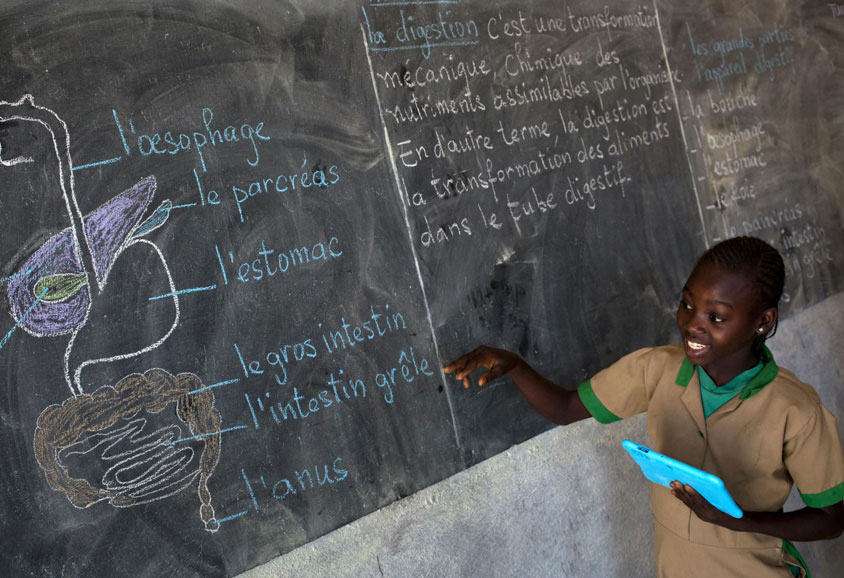 l'œsophage
le parcréas
l'estomac
le gros intestin
l'intestin grêle
l'anus
la digestion c'est une transformation
mécanique, chimique des
nutriments assimilables par l'organisme
En d'autre terme, la digestion est
la transformation des aliments
dans le tube digestif.
les grandes parties de
l'appareil digestif
- la bouche
- l'œsophage
- l'estomac
- le foie
intestin
grêle